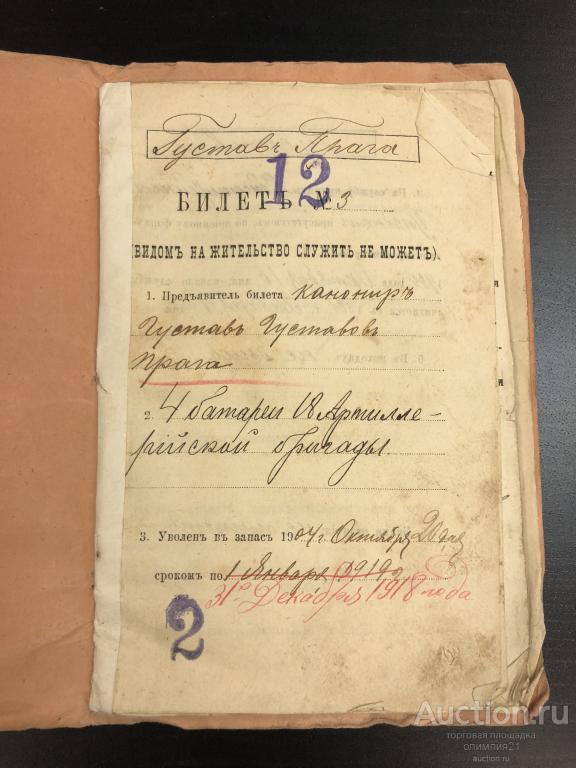 Густавъ Прага
12
БИЛЕТЪ № 3
(ВИДОМЪ НА ЖИТЕЛЬСТВО СЛУЖИТЬ НЕ МОЖЕТЪ).
1. Предъявитель билета канониръ
Густавъ Густавовъ
Прага
2. 4 батареи 18 Артилле-
рійской бригады.
3. Уволенъ въ запасъ 1904 г. Октября 20 дня
срокомъ по 1 Января 1919
31го Декабря 1918 года
2
Auction.ru
торговая площадка
олимпия21
auction.ru